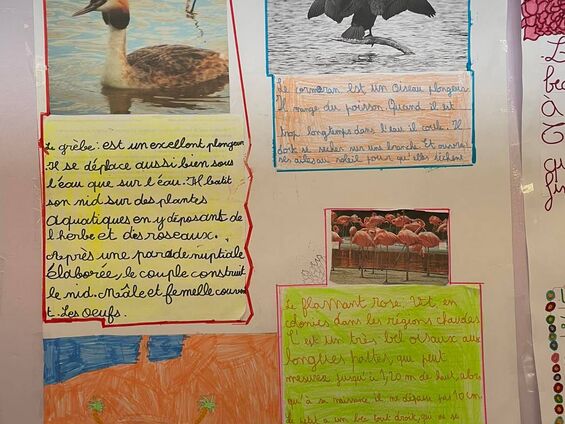 Le grèbe: est un excellent plongeur
Il se déplace aussi bien sous
l'eau que sur l'eau. Il batit
son nid sur des plantes
aquatiques en y déposant de
l'herbe et des roseaux.
Après une parade nuptiale
élaborée, le couple construit
le nid. Mâle et femelle couven
t. Les Oeufs.
Le cormoran est un oiseau plongeur
Il mange du poisson Quand il est
trop longtemps dans l'eau il coule. Il
doit se sécher sur une branche. Et ouvrir
ses ailes au soleil pour qu'elles sèchent
Le flammant rose. Vit en
colonies dans les régions chaudes
C'est un très bel oiseau aux
longues pattes, qui peut
mesurer jusqu'à 1,20 m de haut, alors
qu'à sa naissance il ne dépasse pas 10 cm
le petit a un bec tout droit, qui se